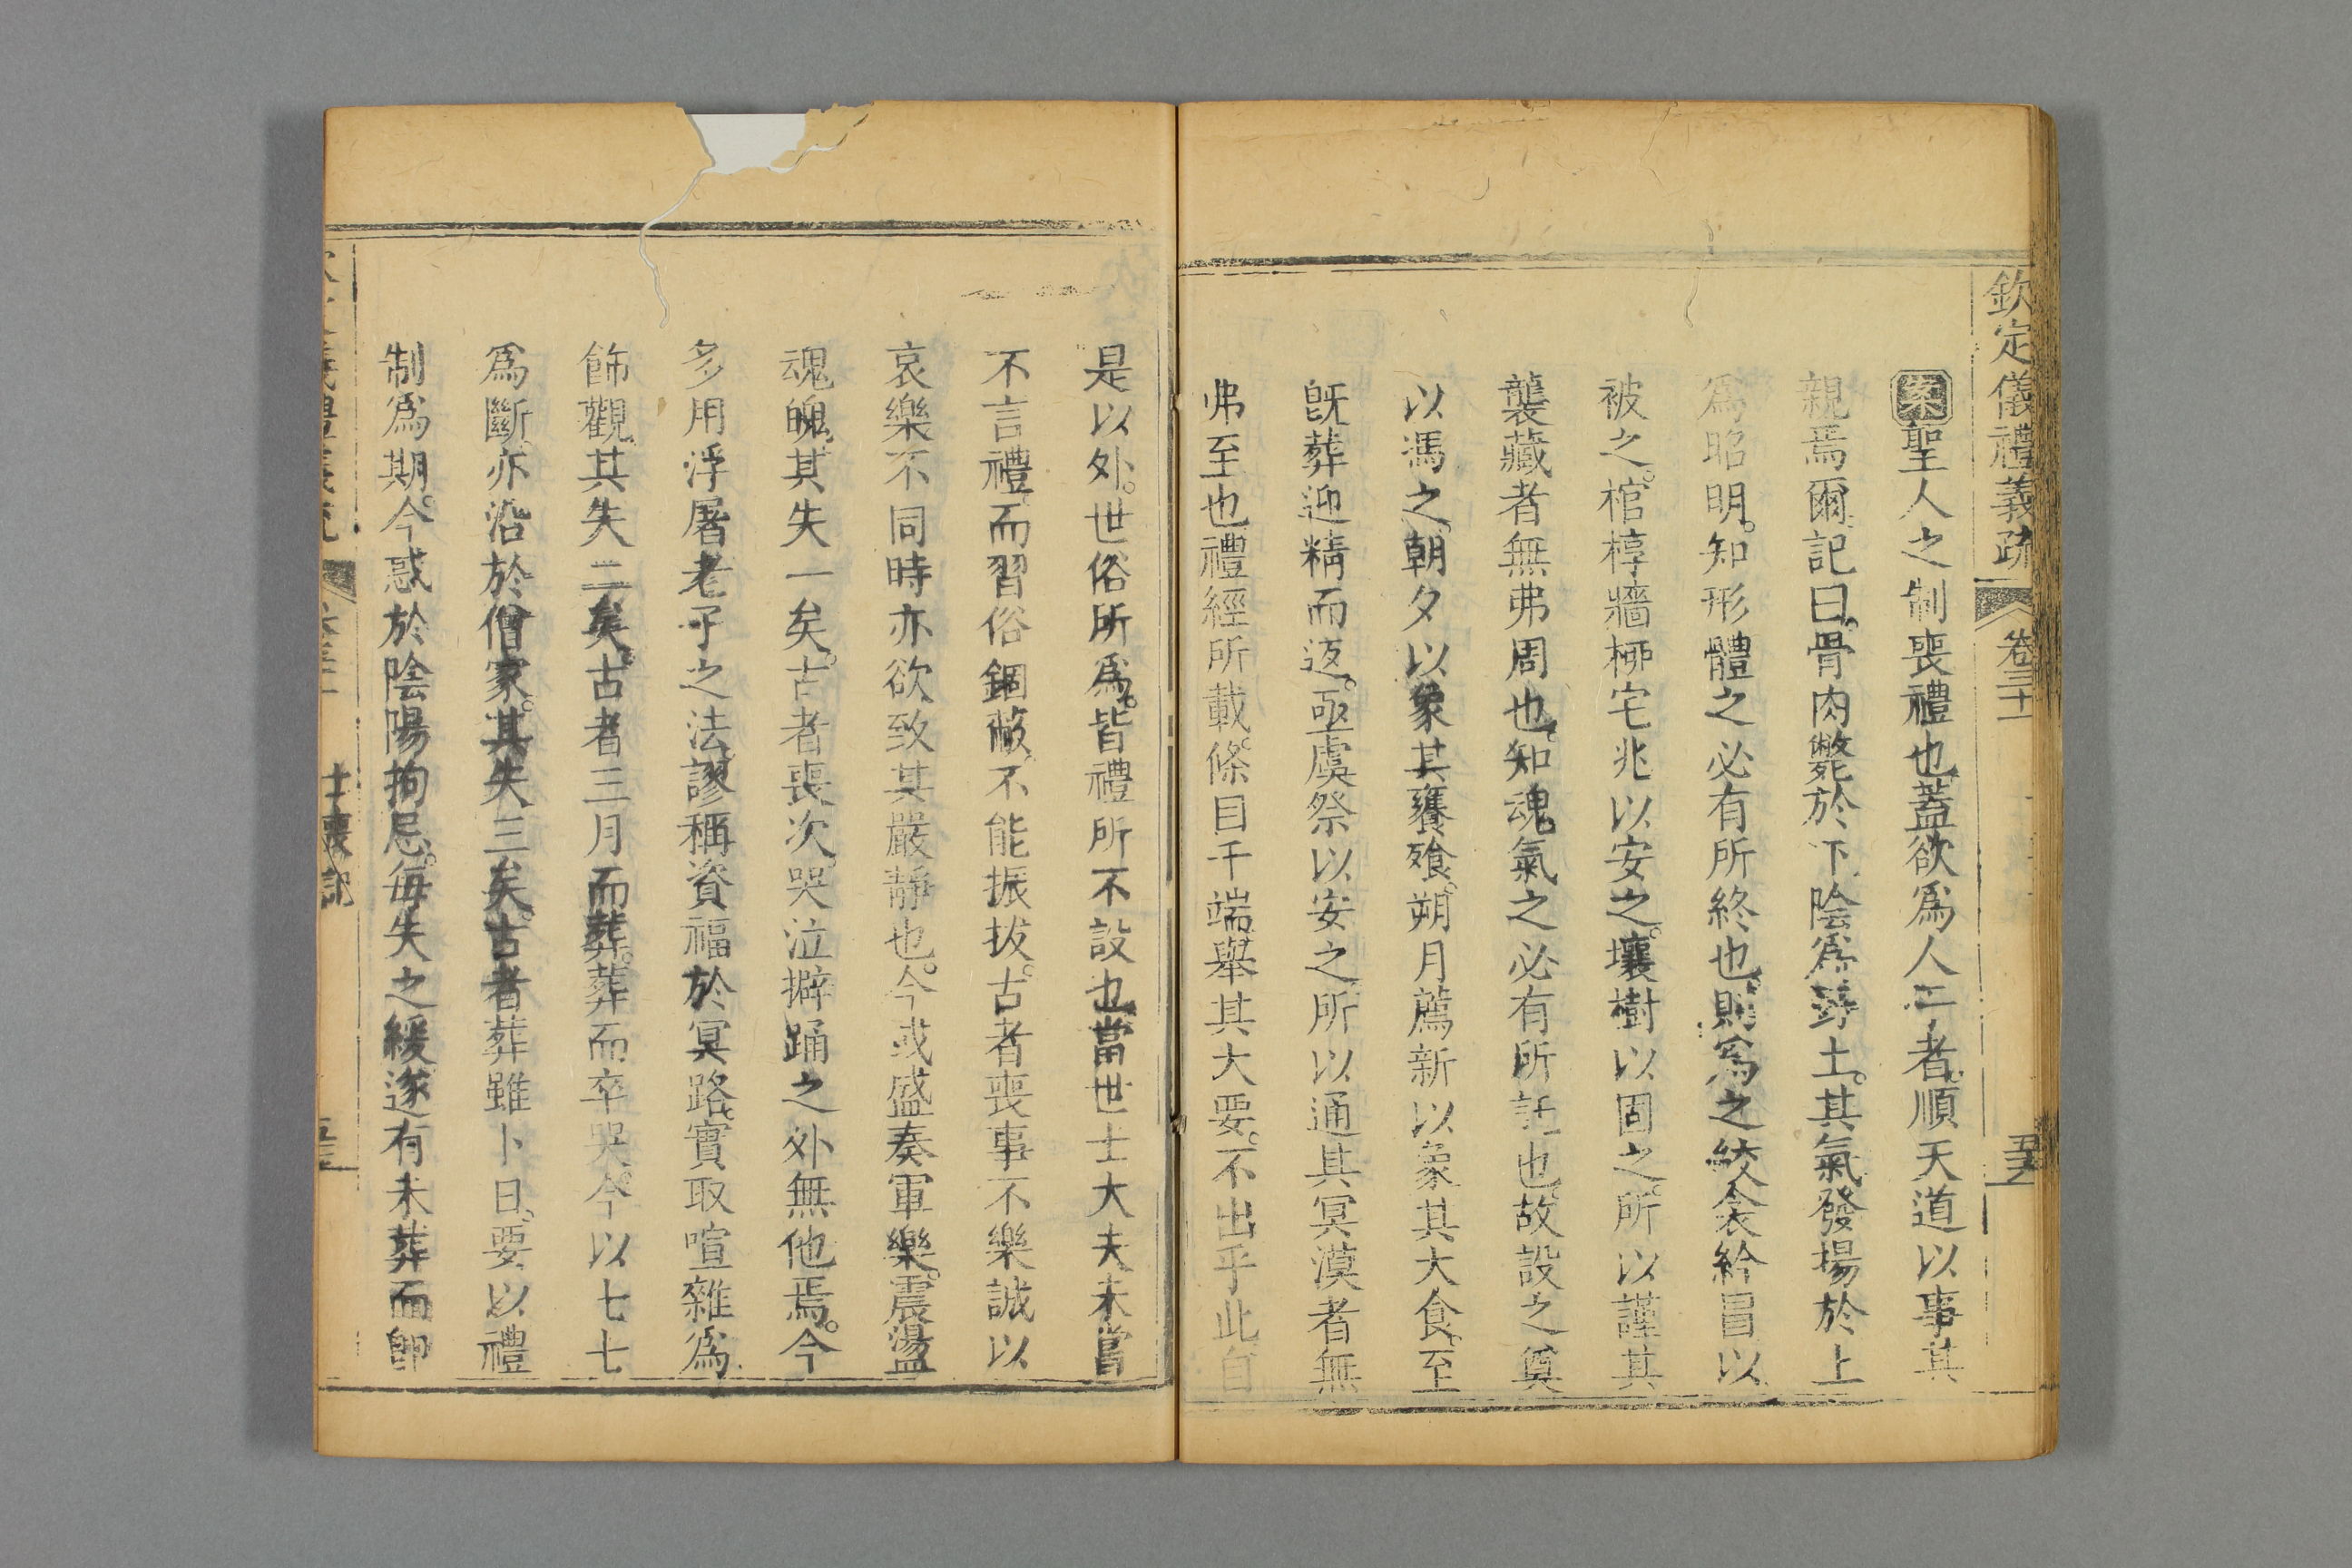 欽定儀禮義疏 卷三十一
案聖人之制喪禮也蓋欲爲人子者順天道以事其
親焉爾記曰骨肉斃於下陰爲野土其氣發揚於上
爲昭明知形體之必有所終也則爲之絞衾紟冒以
被之棺椁牆柳宅兆以安之壤樹以固之所以謹其
襲藏者無弗周也知魂氣之必有所託也故設之奠
以馮之朝夕以象其饔飧朔月薦新以象其大食至
旣葬迎精而返亟虞祭以安之所以通其冥漠者無
弗至也禮經所載條目千端舉其大要不出乎此自
是以外世俗所爲皆禮所不設也當世士大夫未嘗
不言禮而習俗錮蔽不能振拔古者喪事不樂誠以
哀樂不同時亦欲致其嚴靜也今或盛奏軍樂震盪
魂魄其失一矣古者喪次哭泣擗踊之外無他焉今
多用浮屠老子之法謬稱資福於冥路實取喧雜爲
飾觀其失二矣古者三月而葬葬而卒哭今以七七
爲斷亦沿於僧家其失三矣古者葬雖卜日要以禮
制爲期今惑於陰陽拘忌每失之緩遂有未葬而卽
士喪記